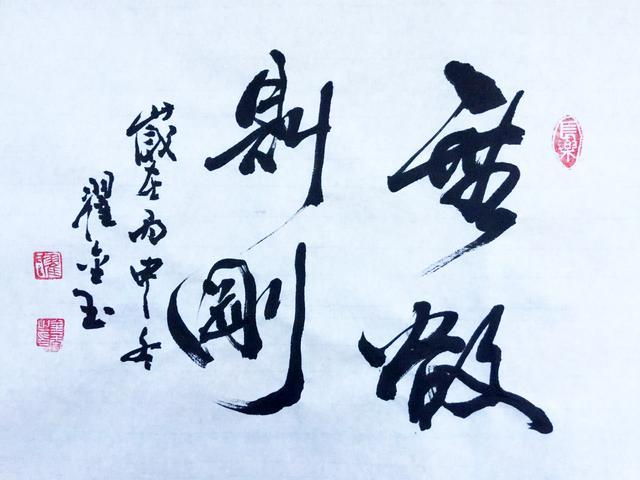 長樂
無欲
則剛
歲在丙申
翟金玉